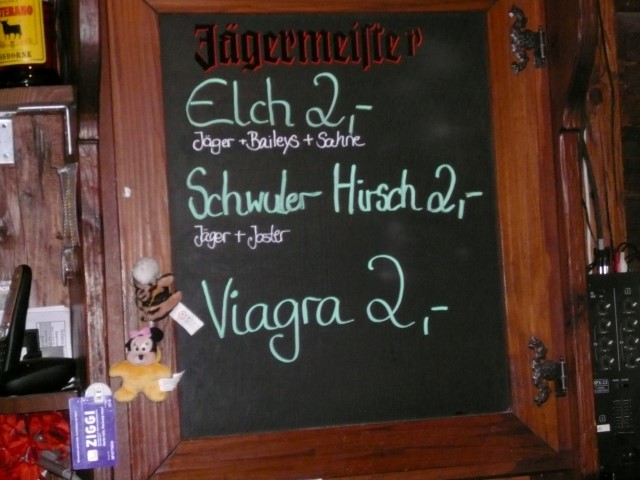 Jägermeister
Elch 2,-
Jäger + Baileys + Sahne
Schwuler Hirsch 2,-
Jäger + Joster
Viagra 2,-
ZIGGI